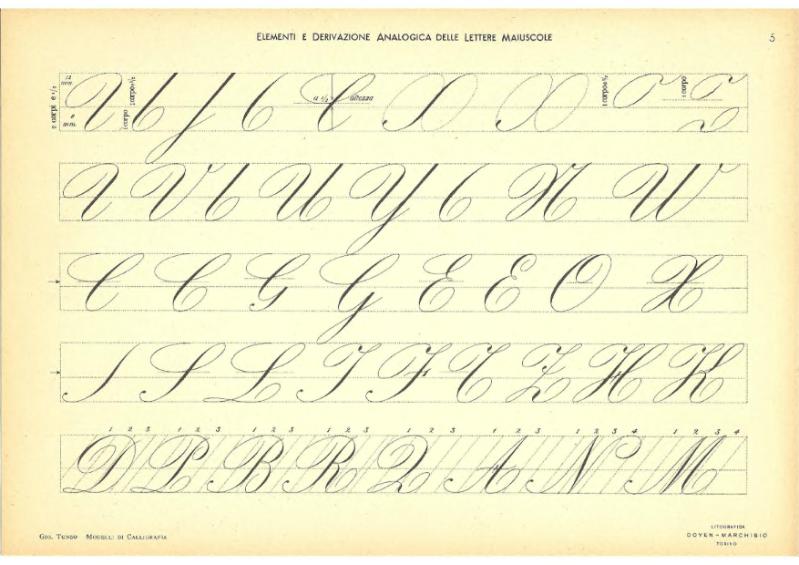 ELEMENTI E DERIVAZIONE ANALOGICA DELLE LETTERE MAIUSCOLE 5
2 corpi e 1/2 12 mm. 6 mm. 1 corpo 1 corpo e 1/2 a 1/3 altezza 1 corpo e 1/2 1 corpo
V U Y N W
C C G G E E O X
I S L T F T Z H K
1 2 3 1 2 3 1 2 3 1 2 3 1 2 3 1 2 3 1 2 3 4 1 2 3 4
D P B R Q A N M
GIO. TUNDO MODELLI DI CALLIGRAFIA
LITOGRAFIA
DOYEN-MARCHISIO
TORINO